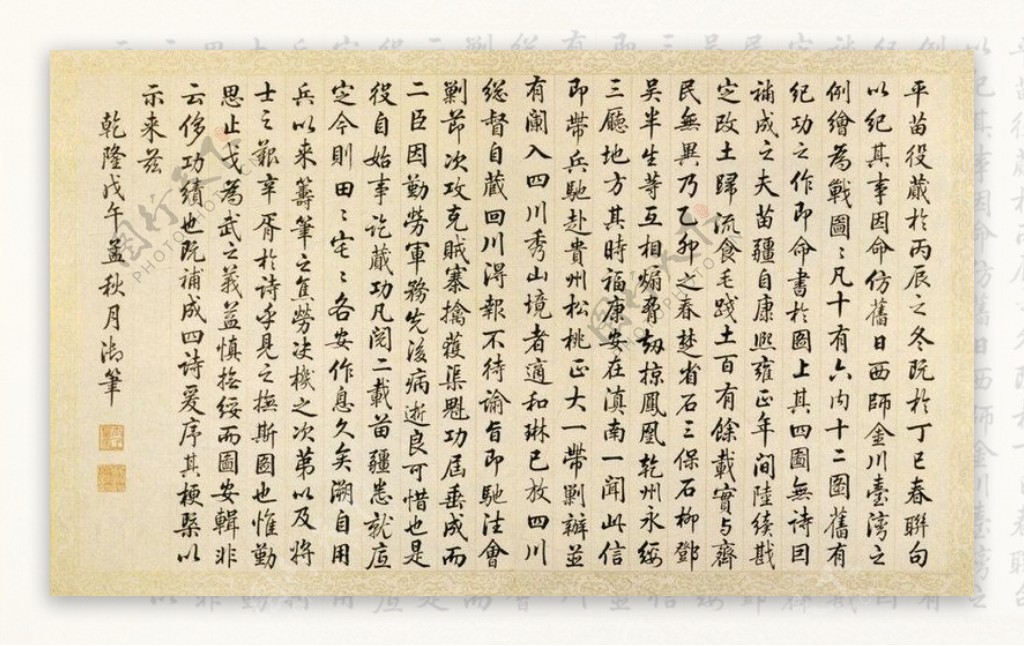 平苗役蕆於丙辰之冬既於丁巳春聯句
以紀其事因命仿舊日西師金川臺灣之
例繪為戰圖〻凡十有六內十二圖舊有
紀功之作即命書於圖上其四圖無詩因
補成之夫苗疆自康熙雍正年間陸續戡
定改土歸流食毛踐土百有餘載實與齊
民無異乃乙卯之春楚省石三保石柳鄧
吳半生等互相煽脅劫掠鳳凰乾州永綏
三廳地方其時福康安在滇南一聞此信
即帶兵馳赴貴州松桃正大一帶剿辦並
有闌入四川秀山境者適和琳已放四川
總督自藏回川得報不待諭旨即馳往會
剿節次攻克賊寨擒獲渠魁功屆垂成而
二臣因勤勞軍務先後病逝良可惜也是
役自始事訖蕆功凡閱二載苗疆悉就底
定今則田〻宅〻各安作息久矣溯自用
兵以來籌筆之焦勞決機之次第以及將
士之艱辛胥於詩乎見之撫斯圖也惟勤
思止戈為武之義益慎撫綏而圖安輯非
云侈功績也既補成四詩爰序其梗槩以
示來茲
乾隆戊午孟秋月御筆